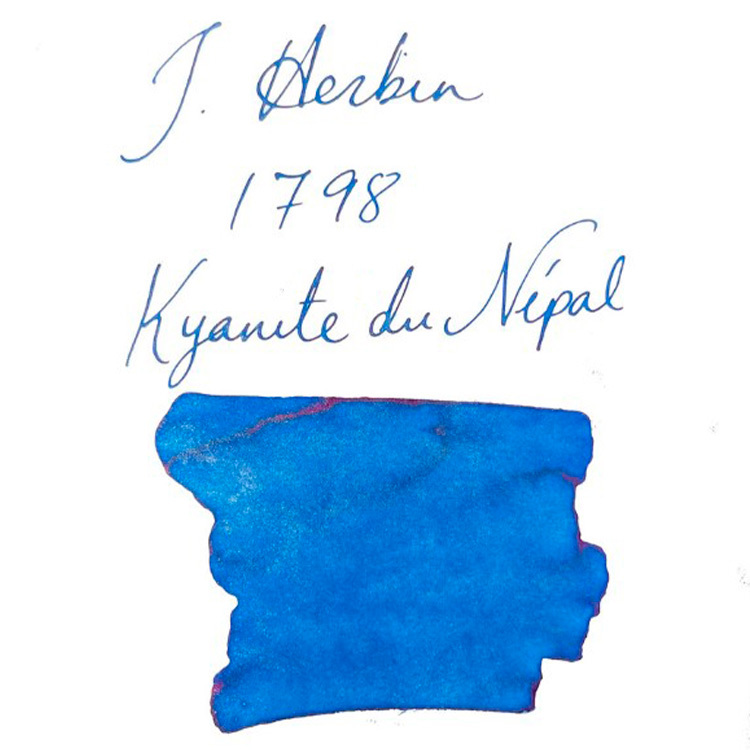 J. Herbin
1798
Kyanite du Népal